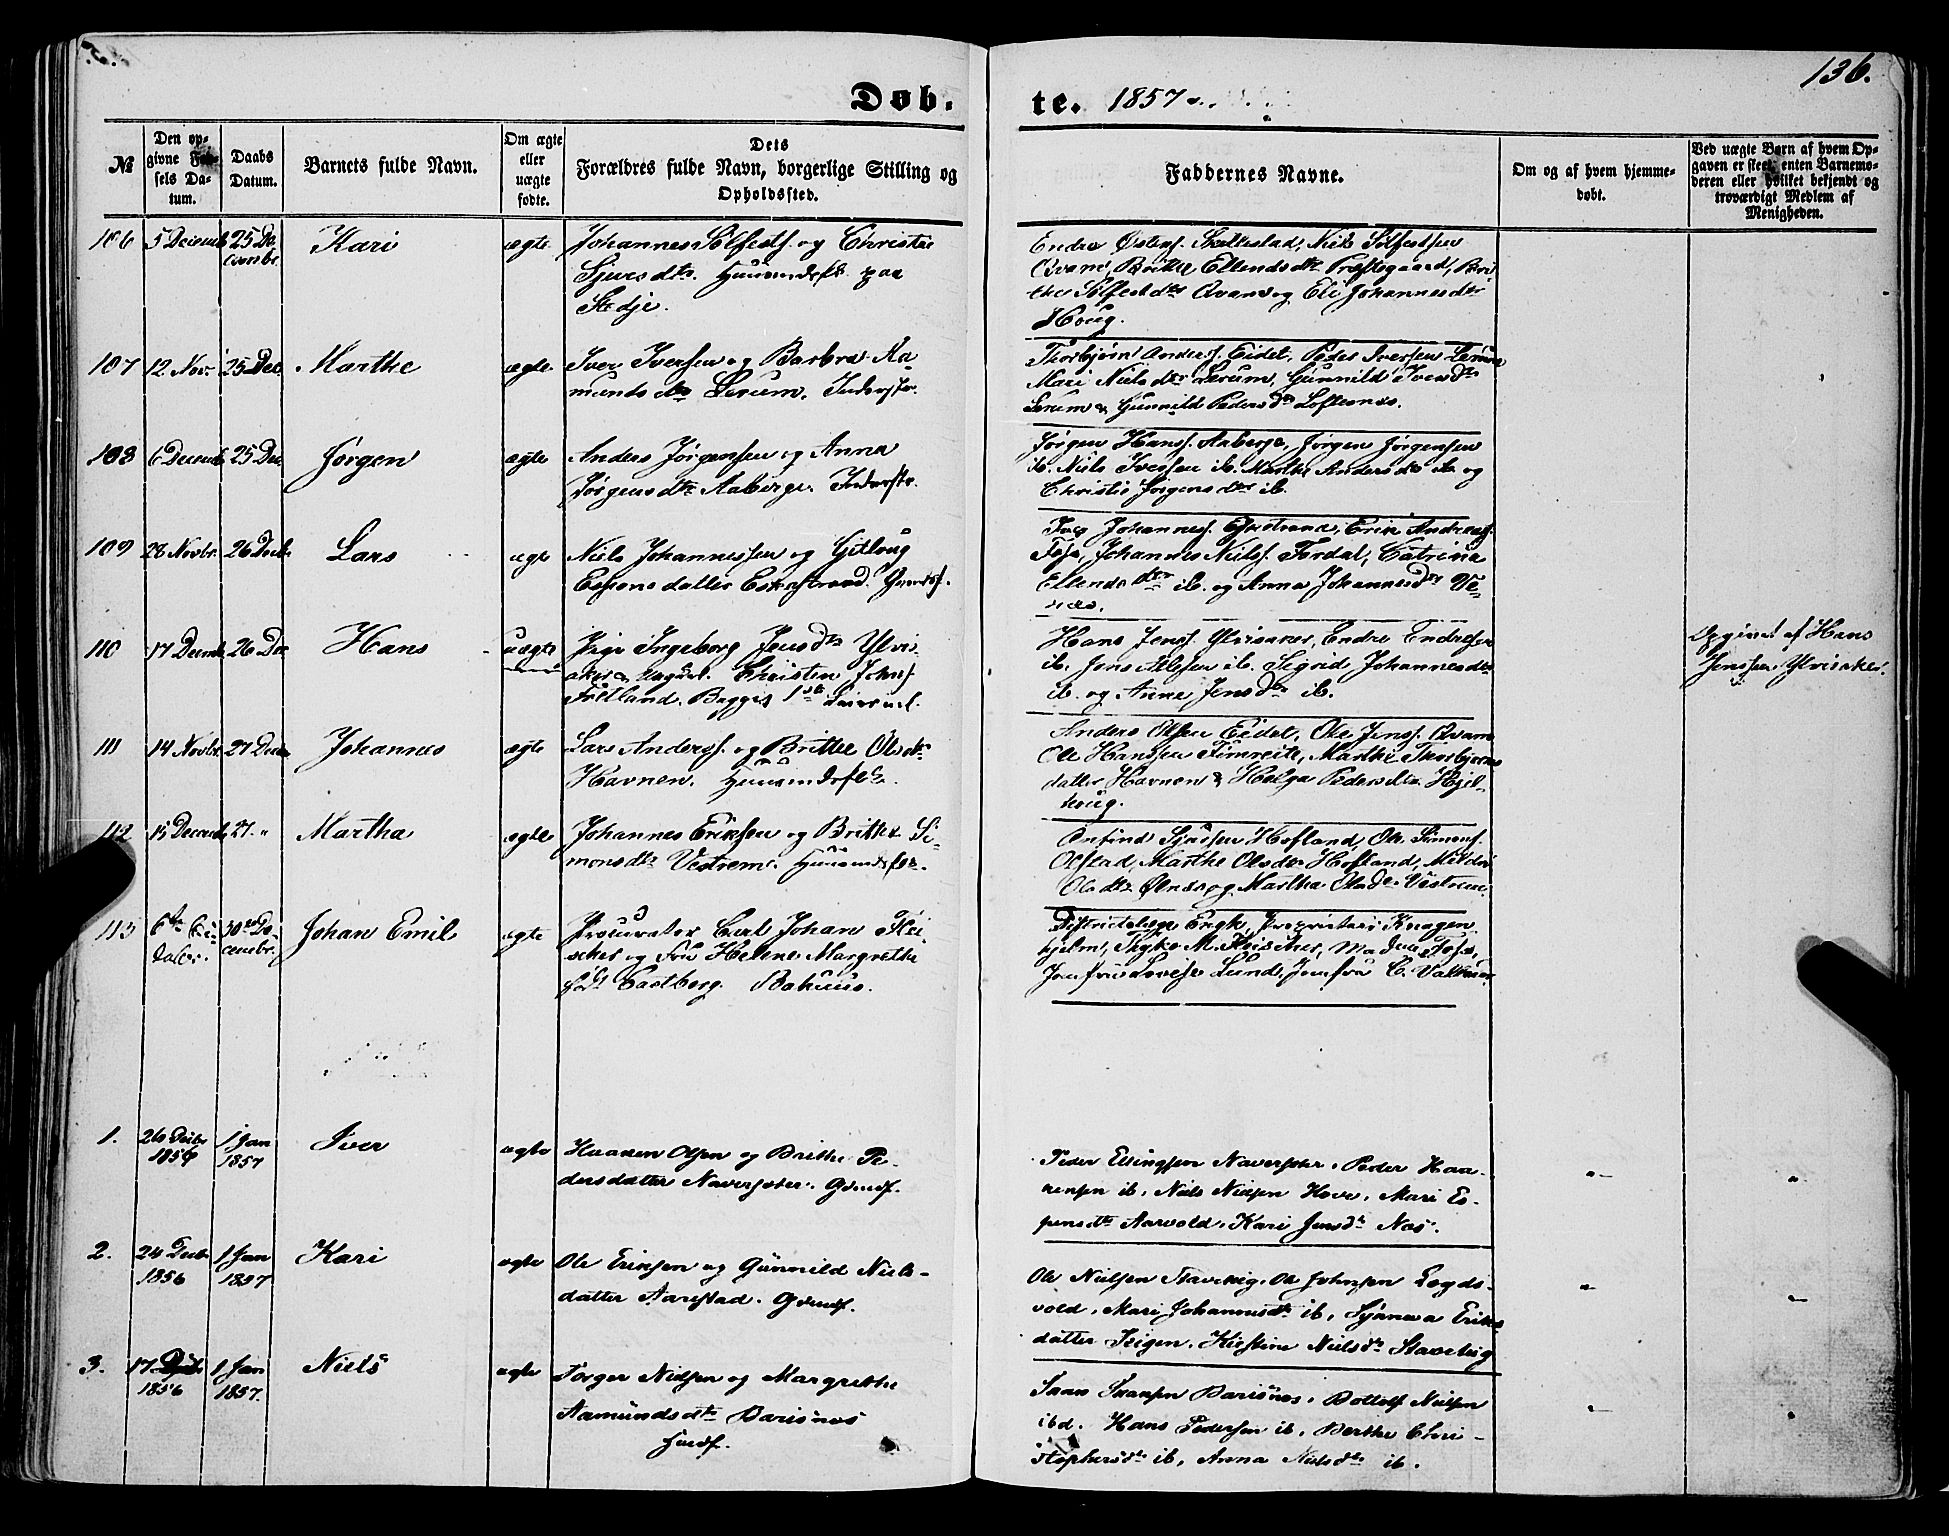 136.
Døb. te. 1857
№
Den op-
givne Fød-
sels Da-
tum.
Daabs
Datum.
Barnets fulde Navn.
Om ægte
eller
uægte
fødte.
Dets
Forældres fulde Navn, borgerlige Stilling og
Opholdssted.
Faddernes Navne.
Om og af hvem hjemme-
døbt.
Ved uægte Børn af hvem Op-
gaven er skeet, enten Barnemo-
deren eller hvilket bekjendt og
troværdigt Medlem af
Menigheden.
106 5 Decemb 25 De-
cembr.
Kari
ægte
Johannes Solfests. og Christie
Sjursdtr. Huusmdsfk. paa
Stedje.
Endre Østens. Niels Solfestsen
Qvam, Brithe Ellendsdtr Præstegaard, Bri-
the Solfestdtr Qvam og Eli Johannesdtr
Houg.
107 12 Nov. 25 Dec.
Marthe
ægte
Iver Iversen og Barbra Aa-
mundsdtr Lerum. Inderstr.
Thorbjørn Anders. Eidet, Peder Iversen Lerum
Mari Nielsdtr Lerum, Gunnild Iversdtr
Lerum & Gunnild Pedersdtr Loftesnes.
108 6 Decemb 25 Dec
Jørgen
ægte
Anders Jørgensen og Anna
Jørgensdtr Aaberge. Inderstr.
Jørgen Hanss. Aaberge, Jørgen Jørgensen
ib. Niels Iversen ib. Marthe Andersdtr ib og
Christie Jørgensdtr ib.
109 28 Novbr. 26 Decb.
Lars
ægte
Niels Johannessen og Gitloug
Espensdatter Eskestrand. Grmdsf.
Johanness. Eskestrand, Erik Andreass.
Foss, Johannes Niels. Fardal, Catrina
Ellendsdtr ib. og Anna Johannesdtr Ve-
110 17 Decemb 26 Dec
Hans
uægte
Pige Ingeborg Jensdtr Ylvis-
aker & ungkrl. Christen Johns.
Fetland. Begges 1ste Leierml.
Hans Jenss. Ylvisaker, Endre Endresen
ib. Jens Atlesen ib. Sigrid Johannesdtr
ib. og Anne Jensdtr ib.
Opgivet af Hans
Jenssen Ylvisaker.
111 14 Novbr. 27 Decbr
Johannes
ægte
Lars Anderss. og Brithe Olsdtr
Havnen. Huusmdsfolk.
Anders Olsen Eidet, Ole Jenss. Qvam
Ole Hanssen Fimreite, Marthe Thorbjørns
datter Havnen & Helga Pedersdtr. Hjel-
112 15 Decemb 27 "
Martha
ægte
Johannes Eriksen og Brithe Si-
monsdtr Vestrem. Huusmdsfk.
Anfind Sjursen Hofland, Ole Simons.
Olstad, Marthe Olsdtr Hofland,
Olsdtr Ølnes og Martha Olsdtr Vestrem.
113 30te De-
cembr.
Johan Emil
ægte
Procurator Carl Johan Flei-
scher og Frue Helene Margrethe
født Castberg.
Districtslæge Engh, Proprietær Knagen-
hjelm, Tyge M. Fleischer, Madme Foss,
Jomfru Lovise Lund, Jomfru C.
1. 26 Decbr
1856
1 Jan
1857
Iver
ægte
Haagen Olsen og Brithe Pe-
dersdatter Navarseter. Grmdf.
Peder Ellingsen Navarseter, Peder Haa-
gensen ib, Niels Nielsen Hove, Mari Es-
pensdtr Aarvold, Kari Jensdtr Næs.
2. 24 Decbr
1856
1 Jan
1857
Kari
ægte
Ole Eriksen og Gunnild Niels-
datter Aarestad. Grmdf.
Ole Nielsen Stavehig, Ole Johnsen Lægds-
vold, Mari Johannesdtr ib, Synneva Eriks-
datter Kristine Nielsdtr Stavehig
3. 17 Decbr
1856
1 Jan
1857.
Niels
ægte
Torger Nielsen og Margrethe
Aamundsdtr Barisnæs
Husf.
Barisnæs, Bottolf Nielsen
ibd. Hans Pedersen ib, Berthe Chri-
stophersdtr ib, Anna Nielsdtr ib.